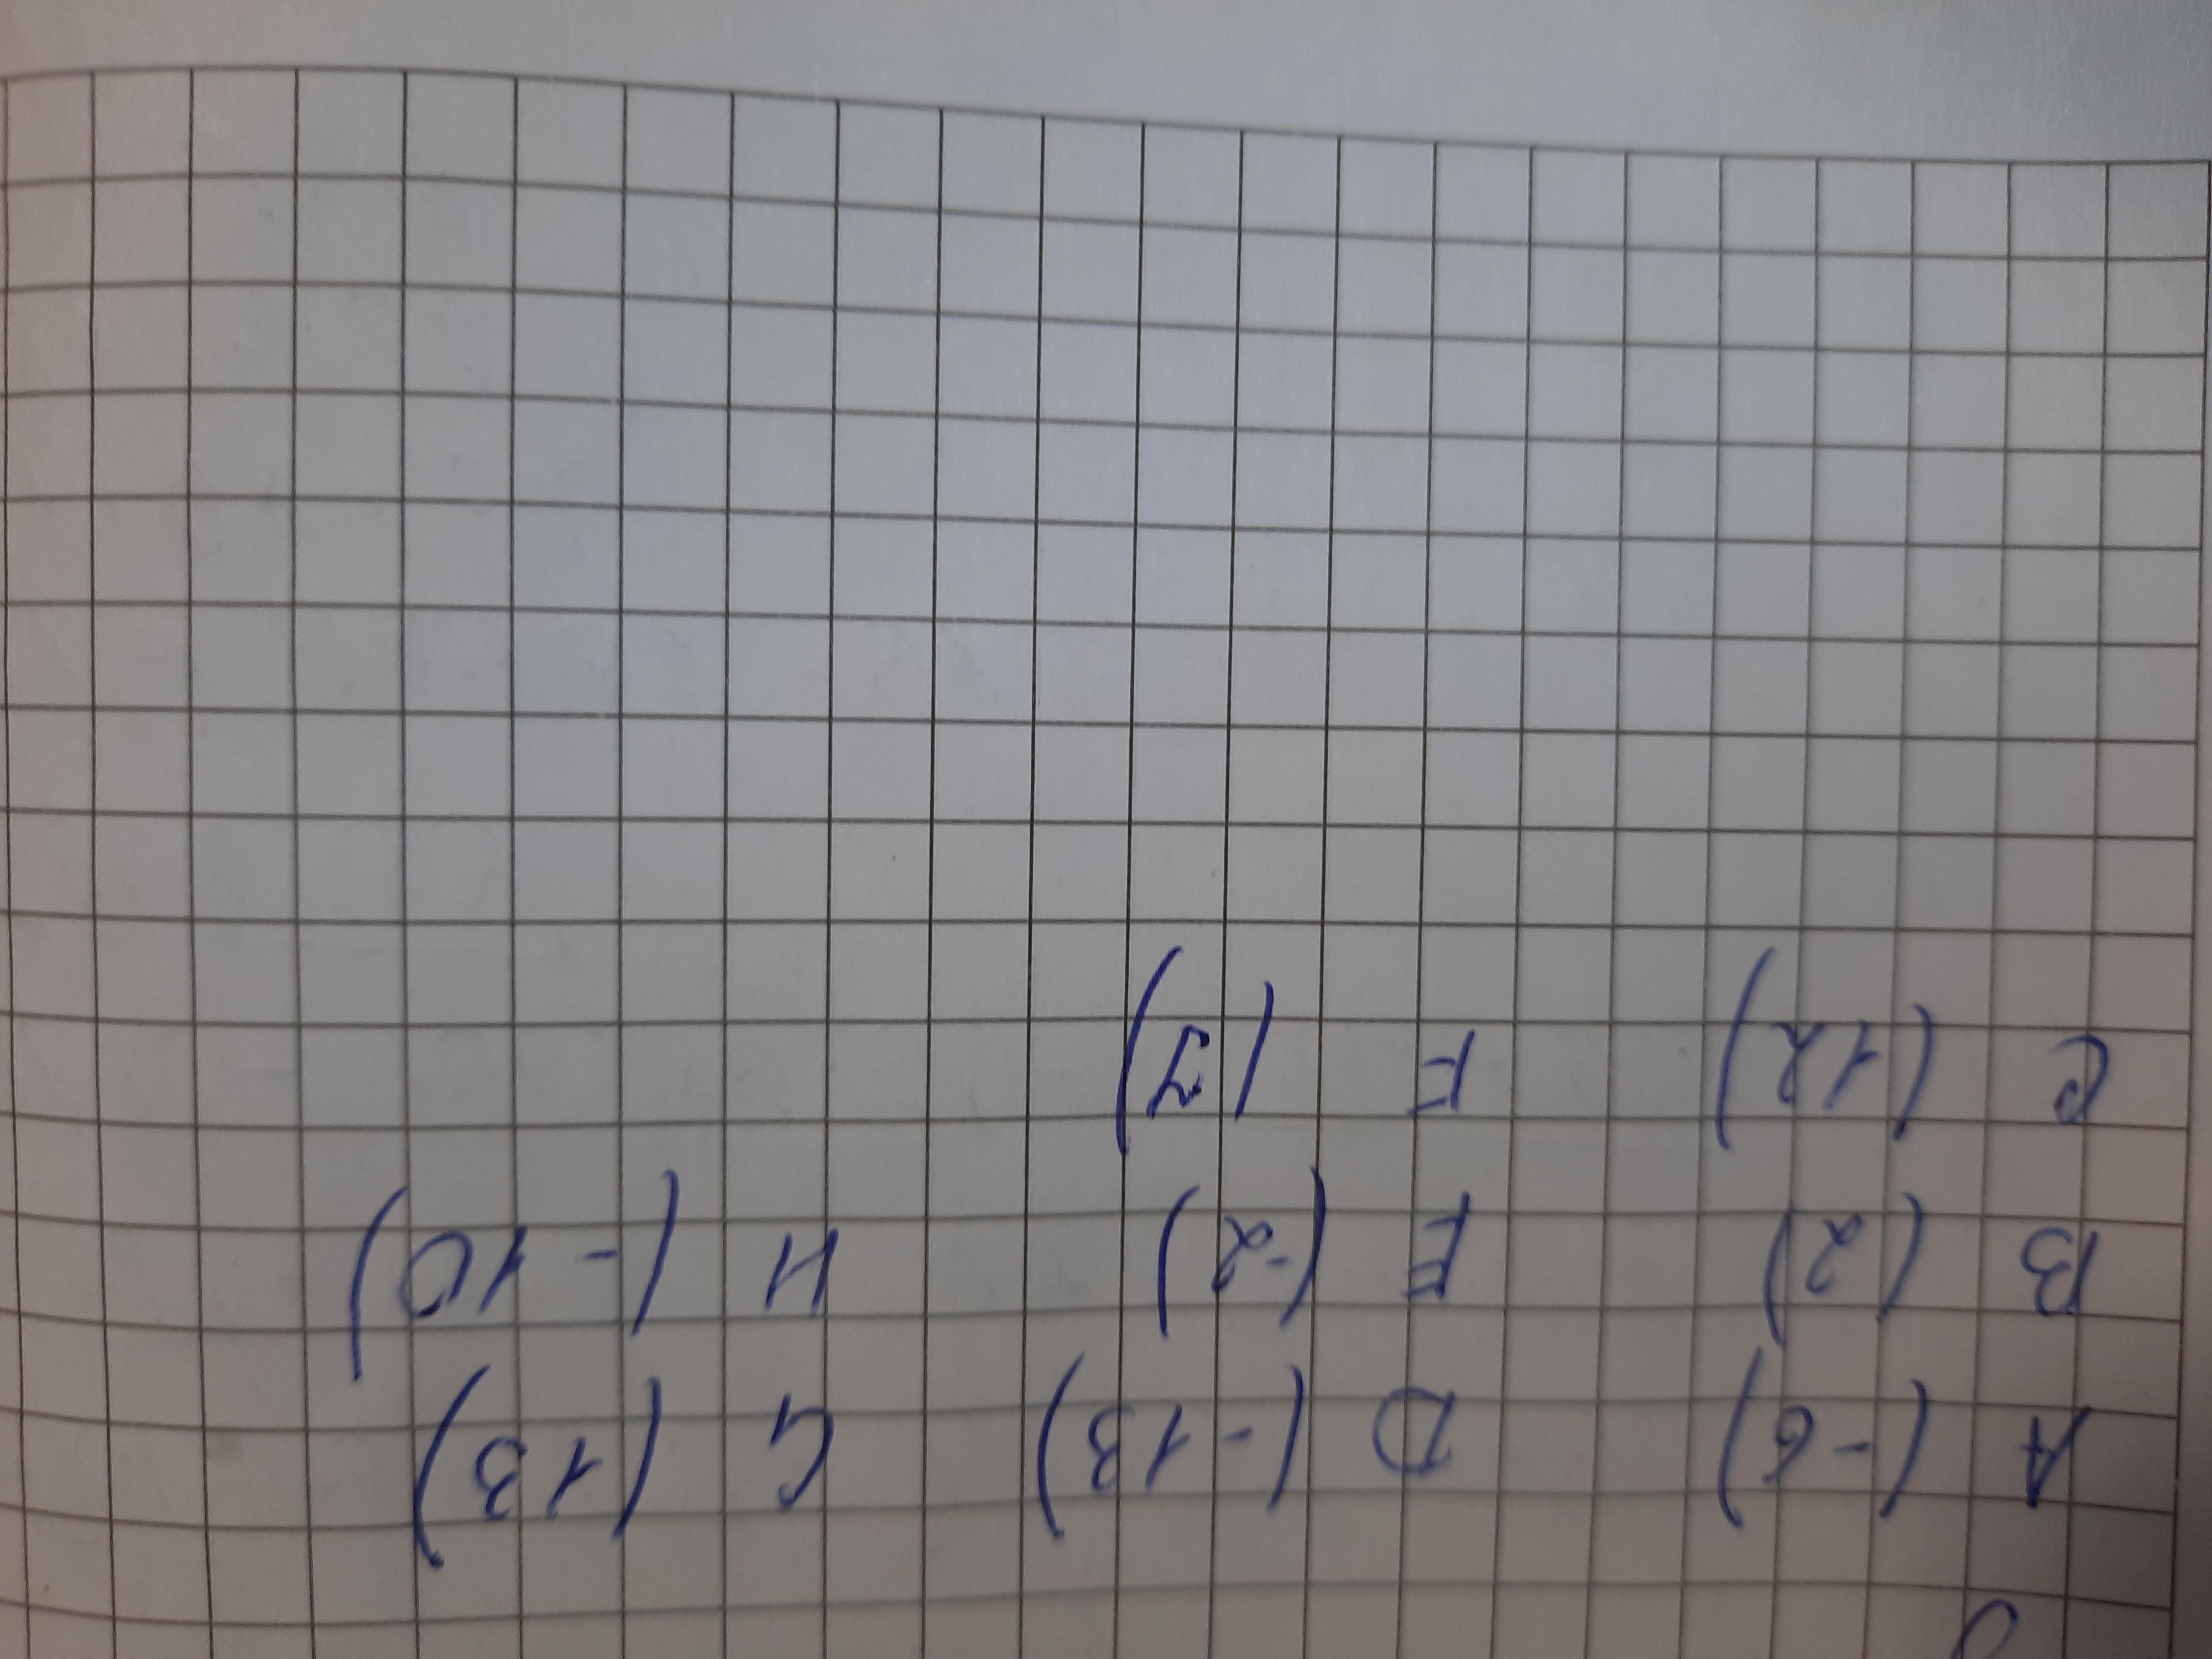 A (-6) D (-13) G (13)
B (2) E (-2) H (-10)
C (12) F (7)